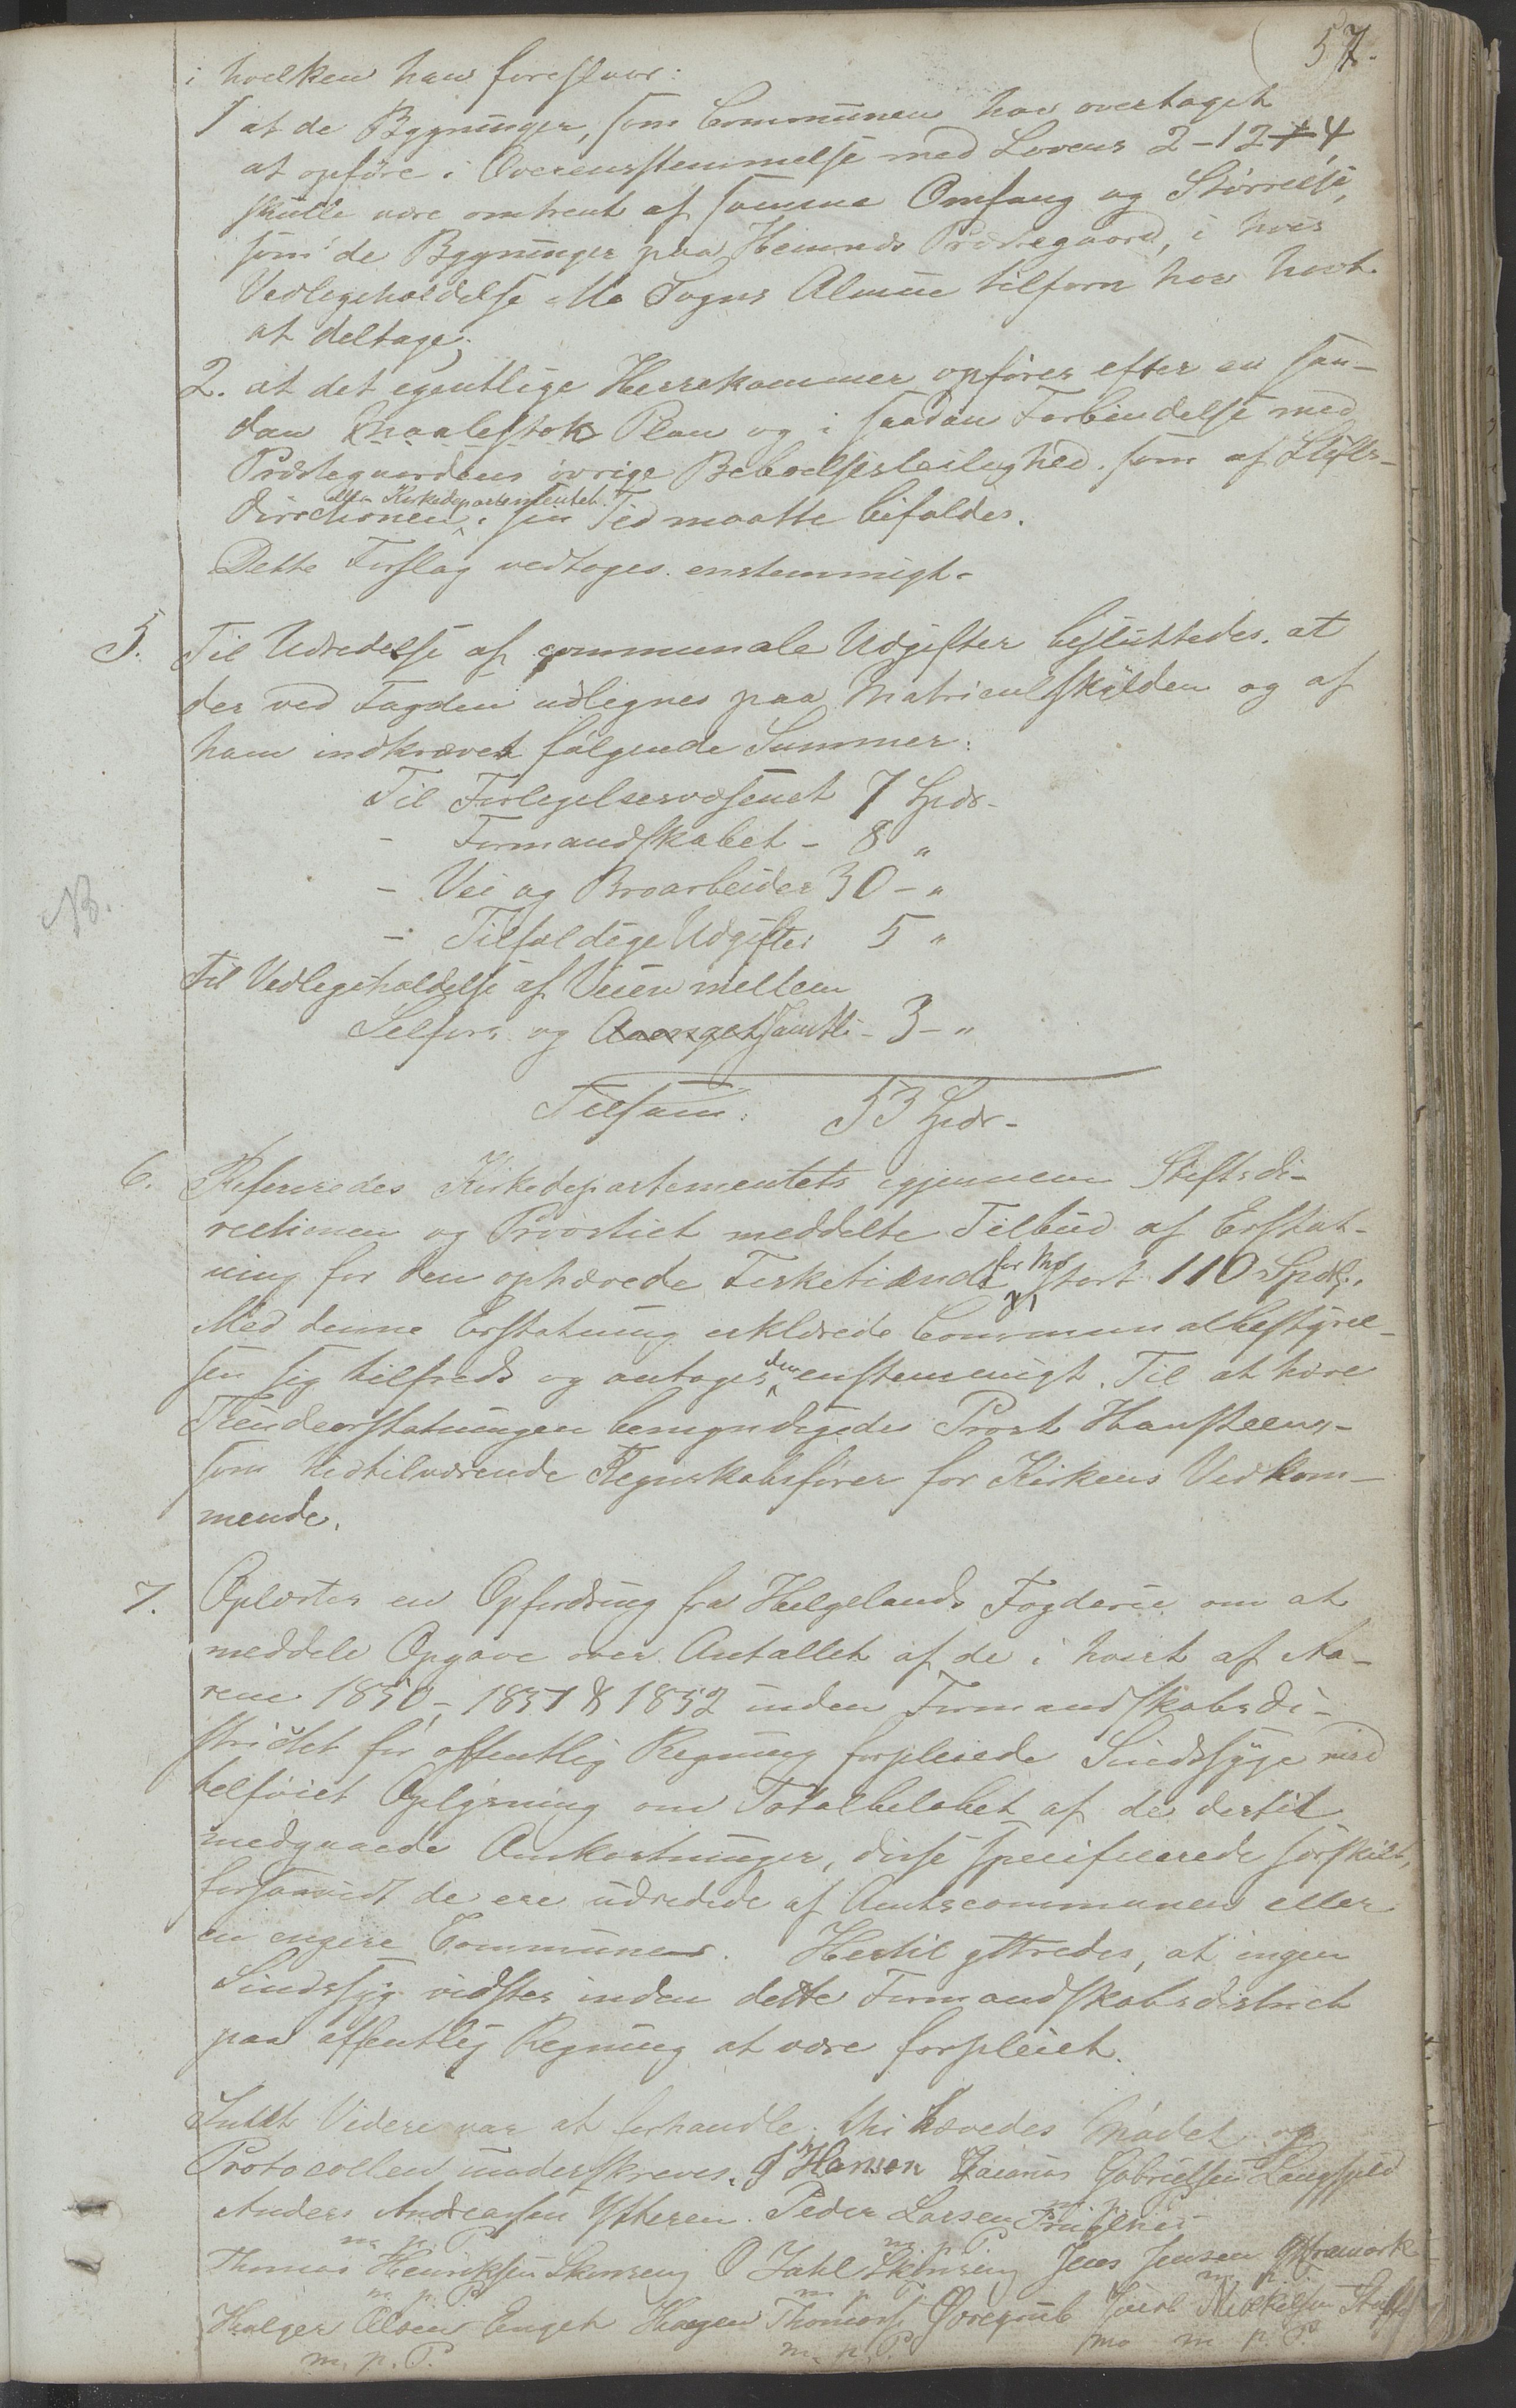 57.
i hvilken han foreslaaer:
1 at de Bygninger, som Communen har overtaget
at opføre i Overensstemmelse med Lovens 2-12-4
skulle være omtrent af samme Omfang og Størrelse,
som de Bygninger paa Hemnes Præstegaard, i hvis
Vedligeholdelse Mo Sogns Almue tilforn har havt
at deltage;
2. at det egentlige Herrekammer opføres efter en saa-
dan Maalestok Plan og i saadan Forbindelse med
Præstegaardens øvrige Beboelsesleilighed, som af Stifts-
directionen eller Kirkedepartementet i sin Tid maatte bifaldes.
Dette Forslag vedtoges enstemmigt.
5. Til Udredelse af communale Udgifter besluttedes, at
der ved Fogden udlignes paa Matriculskylden og af
ham indkrævet følgende Summer:
Til Forligelsesvæsenet 7 Spdr.
- Formandskabet - 8 "
- Vei og Broarbeider 30 - "
- Tilfældige Udgifter 5 "
NB.
Til Vedligeholdelse af Veien mellem
Selfors og Aaenget Jamtli - 3 - "
Tilsam. 53 Spdr.
6. Refereredes Kirkedepartementets igjennem Stiftsdi-
rectionen og Provstiet meddelte Tilbud af Erstat-
ning for den ophævede Fisketiende for Mo stort 110 Spdlr.
Med denne Erstatning erklærede Communalbestyrel-
sen sig tilfreds og antoges den enstemmigt. Til at hæve
Tiendeerstatningen bemyndigedes Provst Hansteen
som hidtilværende Regnskabsfører for Kirkens Vedkom-
mende.
7. Oplæstes en Opfordring fra Helgelands Fogderie om at
meddele Opgave over Antallet af de i hvert af Aa-
rene 1850, 1851 & 1852 inden Formandskabsdi-
strictet for offentlig Regning forpleiede Sindssyge med
tilføiet Oplysning om Totalbeløbet af de dertil
medgaaede Omkostninger, disse specificerede særskilt,
forsaavidt de ere udredede af Amtscommunen eller
en engere Commune. Hertil yttredes, at ingen
Sindssyg vidstes inden dette Formandskabsdistrict
paa offentlig Regning at være forpleiet.
Intet Videre var at forhandle, thi hævedes Mødet og
Protocollen underskreves. J Hansen Zacarias Gabrielsen Langfjeld
Anders Andreassen Ytteren. Peder Larsen m. p. P.
m. p. P. m. p. P.
Thomas Henriksen Skonseng O Jahl Skonseng Jens Jensen Yttramark
m. p. P. m. p. P. m. p. P.
Holger Olsen Enget Hagen Thomass Øvregrub Jacob Mikkelsen
m. p. P. m. p. P. m p. P.